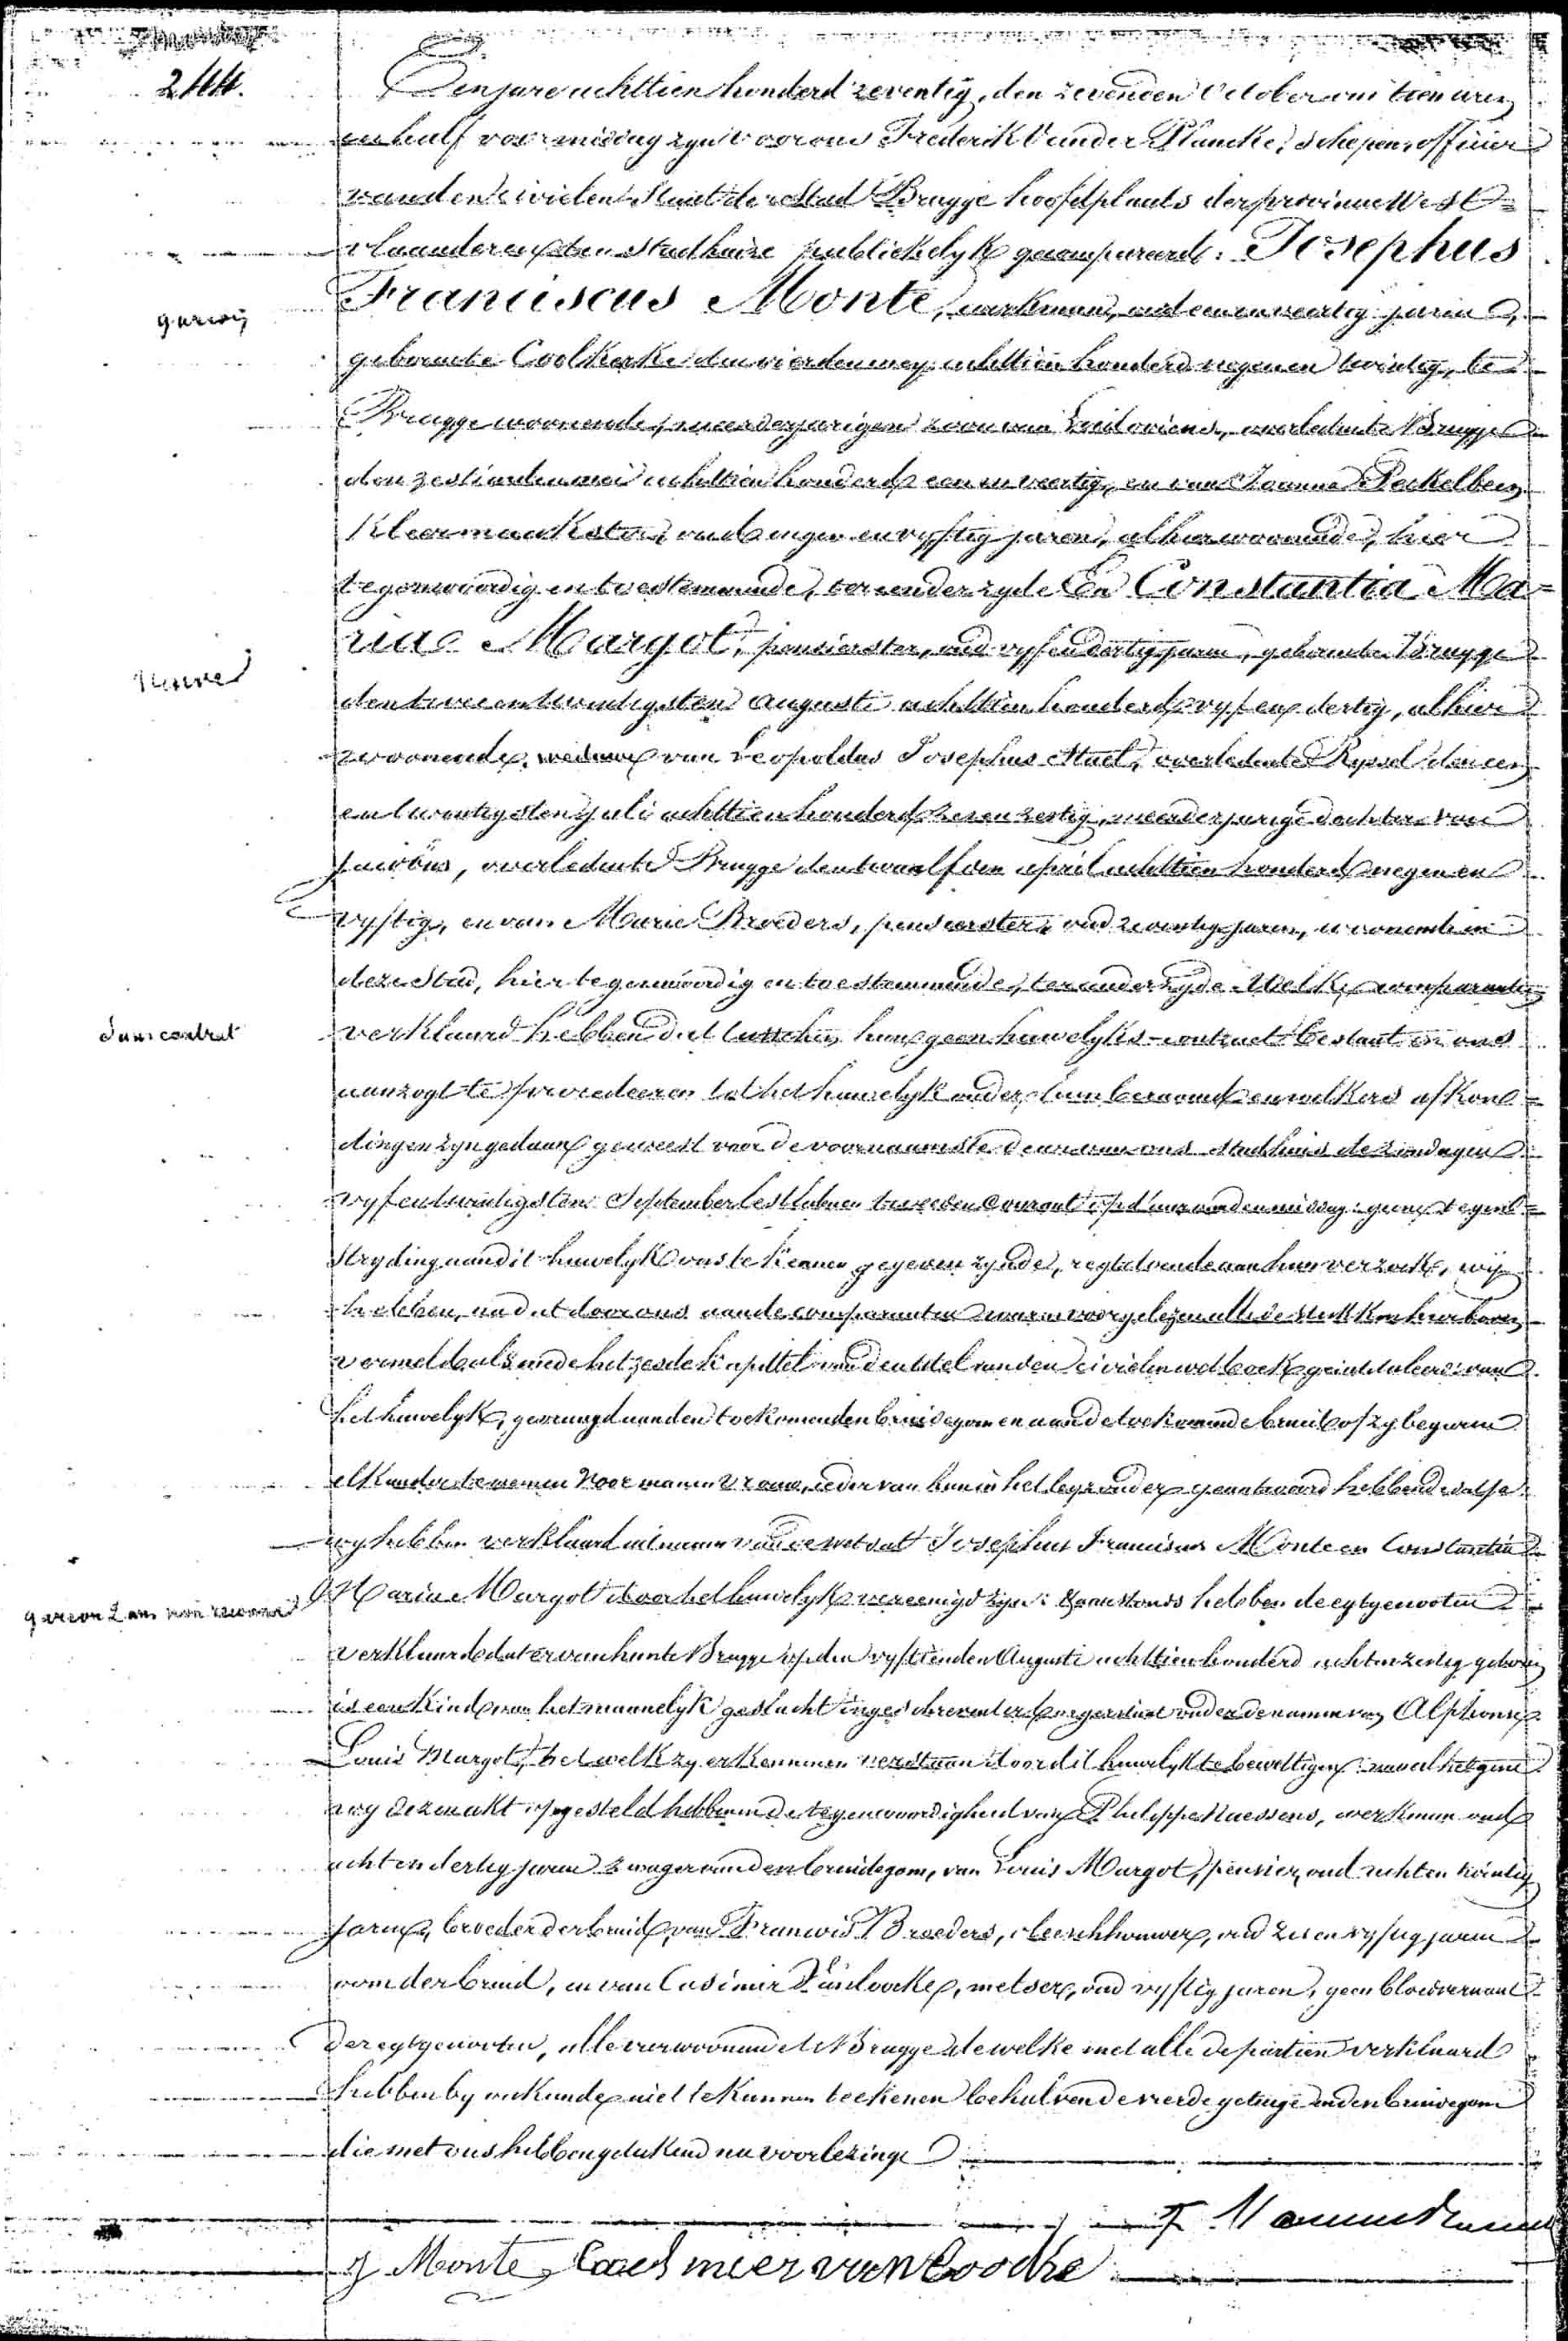 244.
Ten jare achttien honderd zeventig, den zevenden October om tien uren
en half voormiddag zyn voor ons Frederik Vander Plancke, schepen, officier
van den civielen Staat der Stad Brugge hoofdplaats der provincie West=
vlaanderen, ten stadhuize publiekelyk gecompareerd: Josephus
garçon
Franciscus Monte, werkman, oud een en veertig jaren,
geboren te Coolkerke den vierden mey achttien honderd negen en twintig, te
Brugge woonende, meerderjarigen zoon van Ludovicus, overleden te Brugge
den zestienden mei achttien honderd een en veertig, en van Joanna Peckelbeen
Kleermaakster, oud negen en vyftig jaren, alhier woonende, hier
tegenwoordig en toestemmende, ter eender zyde En Constantia Ma=
ria Margot, pensierster, oud vyf en dertig jaren, geboren te Brugge
Veuve
den twee en twintigsten Augusti achttien honderd vyf en dertig, alhier
woonende, weduwe van Leopoldus Josephus Mael, overleden te Ryssel den een
en twintigsten Juli achttien honderd zeven zestig, meerderjarige dochter van
Jacobus, overleden te Brugge den twaalfden april achttien honderd negen en
vyftig, en van Marie Broeders, pensierster, oud zeventig jaren, woonende in
deze Stad, hier tegenwoordig en toestemmende, ter ander zyde. Welke comparanten
sans contrat
verklaard hebben dat tusschen hun geen huwelyks-contract bestaat en ons
aanzogt te procedeeren tot het huwelyk onder hun beraamd en welkers afkon=
dingen zyn gedaan geweest voor de voornaamste deur van ons stadhuis de zondagen
vyf en twintigsten September lestleden en tweeden courant op d'uur van den middag: geene tegen=
stryding aan dit huwelyk ons te kennen gegeven zynde, regtdoende aan hun verzoek, wij
hebben, na dat door ons aan de comparanten waren voorgelezen alle de stukken hierboven
vermeld als mede het zesde kapittel van den titel van den civielen wetboek geintituleerd: van
het huwelyk, gevraagd aan den toekomenden bruidegom en aan de toekomende bruid of zy begeeren
elkander te nemen voor man en vrouw, ieder van hun in het byzonder geantwoord hebbende dat ja
wy hebben verklaard in den name van de wet dat Josephus Franciscus Monte en Constantia
Maria Margot door het huwelyk vereenigd zyn: Daer stonds hebben de egtgenooten
garçon 2 ans non reconnu
verklaard dat er van hun te Brugge op den vyftienden Augusti achttien honderd acht en zestig geboren
is een Kind van het mannelyk geslacht ingeschreven ter burgerstaat onder de namen van Alphonse
Louis Margot, het welk zy erkennen en verstaan door dit huwelyk te bewettigen: van al het gene
wy deze akt opgesteld hebben in de tegenwoordigheid van Philippe Naessens, werkman oud
acht en dertig jaren zwager van den bruidegom, van Louis Margot, pensier, oud achten twintig
jaren, broeder der bruid, van Francois Broeders, vleeschhouwer, oud zes en vyftig jaren
oom der bruid, en van Casimir Vanloocke, metser, oud vyftig jaren, geen bloedverwant
der egtgenooten, alle vier woonende te Brugge dewelke met alle de partien verklaard
hebben by onkunde niet te kunnen teekenen behalven de vierde getuige en den bruidegom
die met ons hebben geteekend na voorlezinge
F Vander
J Monte Caesmeer van Loocke